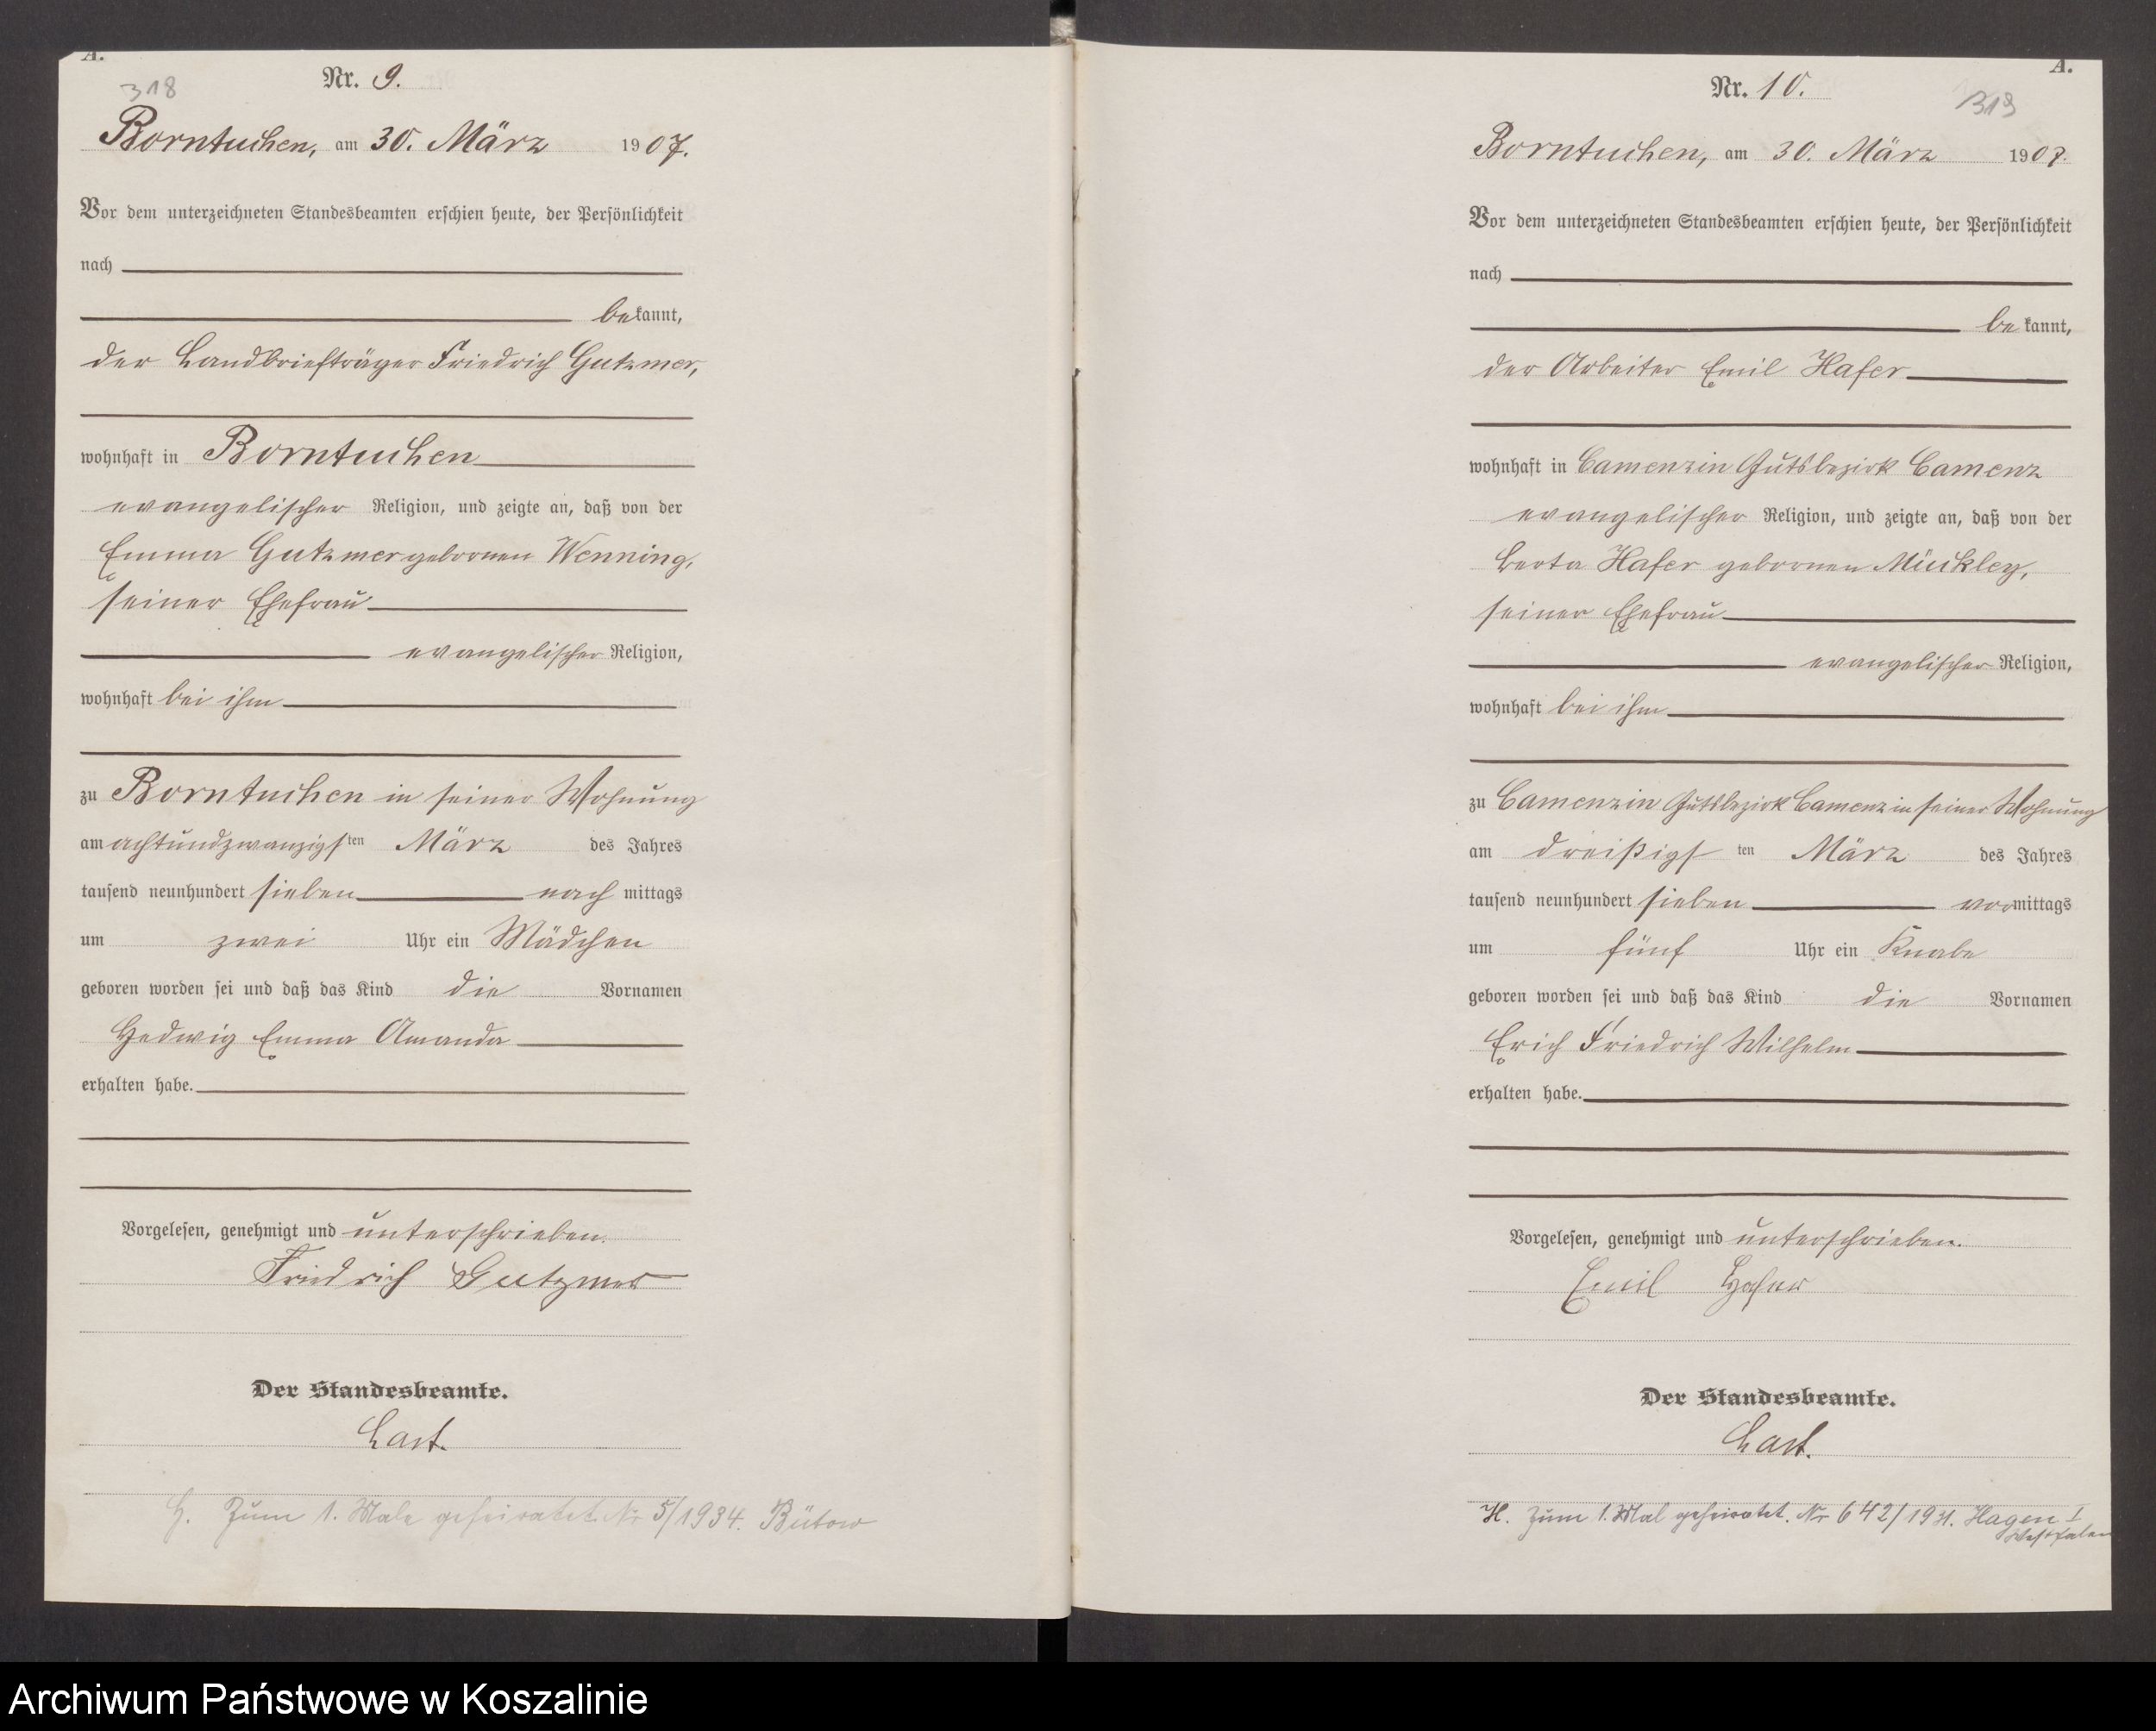 A.
318
Nr. 9.
Borntuchen, am 30. März 1907.
Vor dem unterzeichneten Standesbeamten erschien heute, der Persönlichkeit
nach
bekannt,
der Landbriefträger Friedrich Gutzmer,
wohnhaft in Borntuchen
evangelischer Religion, und zeigte an, daß von der
Emma Gutzmer gebornen Wenning,
seiner Ehefrau
evangelischer Religion,
wohnhaft bei ihm
zu Borntuchen in seiner Wohnung
am achtundzwanzigsten März des Jahres
tausend neunhundert sieben nachmittags
um zwei Uhr ein Mädchen
geboren worden sei und daß das Kind die Vornamen
Hedwig Emma Amanda
erhalten habe.
Vorgelesen, genehmigt und unterschrieben.
Friedrich Gutzmer
Der Standesbeamte.
Last.
H. Zum 1. Male geheiratet. Nr 5/1934. Bütow
A.
319
Nr. 10.
Borntuchen, am 30. März 1907.
Vor dem unterzeichneten Standesbeamten erschien heute, der Persönlichkeit
nach
bekannt,
der Arbeiter Emil Hafer
wohnhaft in Camenzin Gutsbezirk Camenz
evangelischer Religion, und zeigte an, daß von der
Berta Hafer gebornen
seiner Ehefrau
evangelischer Religion,
wohnhaft bei ihm
zu Camenzin Gutsbezirk Camenz in seiner Wohnung
am dreißigsten März des Jahres
tausend neunhundert sieben vormittags
um fünf Uhr ein Knabe
geboren worden sei und daß das Kind die Vornamen
Erich Friedrich Wilhelm
erhalten habe.
Vorgelesen, genehmigt und unterschrieben.
Emil Hafer
Der Standesbeamte.
Last.
H. Zum 1. Mal geheiratet. Nr 642/1931. Hagen I
Westfalen
Archiwum Państwowe w Koszalinie